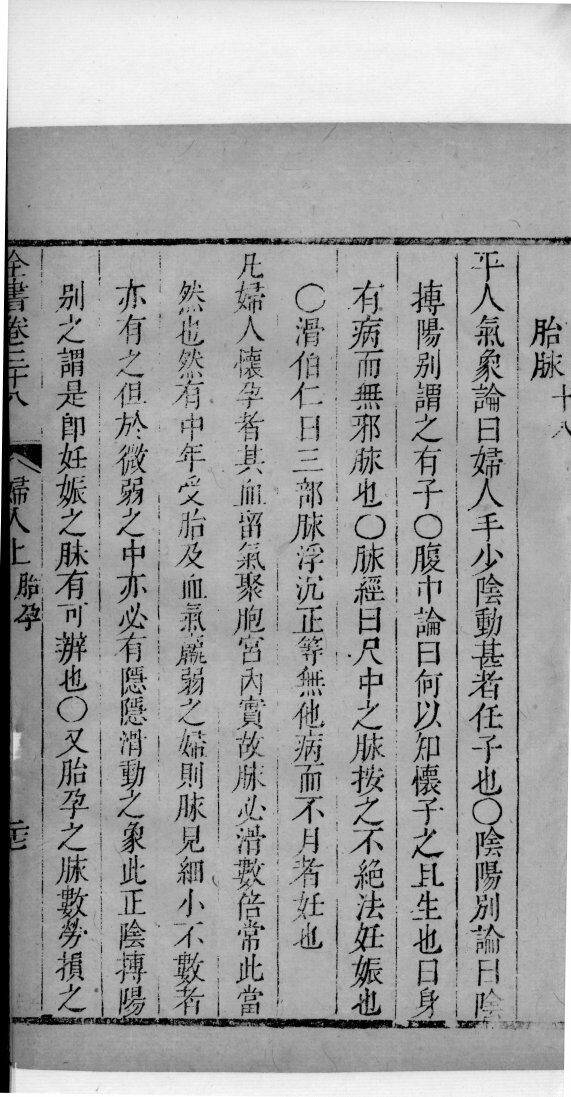 胎脉 十八
平人氣象論曰婦人手少陰動甚者任子也〇陰陽别論曰陰
搏陽别謂之有子〇腹中論曰何以知懷子之且生也曰身
有病而無邪脉也〇脉經曰尺中之脉按之不絶法妊娠也
〇滑伯仁曰三部脉浮沉正等無他病而不月者妊也
凡婦人懷孕者其血留氣聚胞宮内實故脉必滑數倍常此當
然也然有中年受胎及血氣羸弱之婦則脉見細小不數者
亦有之但於微弱之中亦必有隱隱滑動之象此正陰搏陽
别之謂是卽妊娠之脉有可辨也〇又胎孕之脉數勞損之
全書卷三十八 婦人上 胎孕 二十三